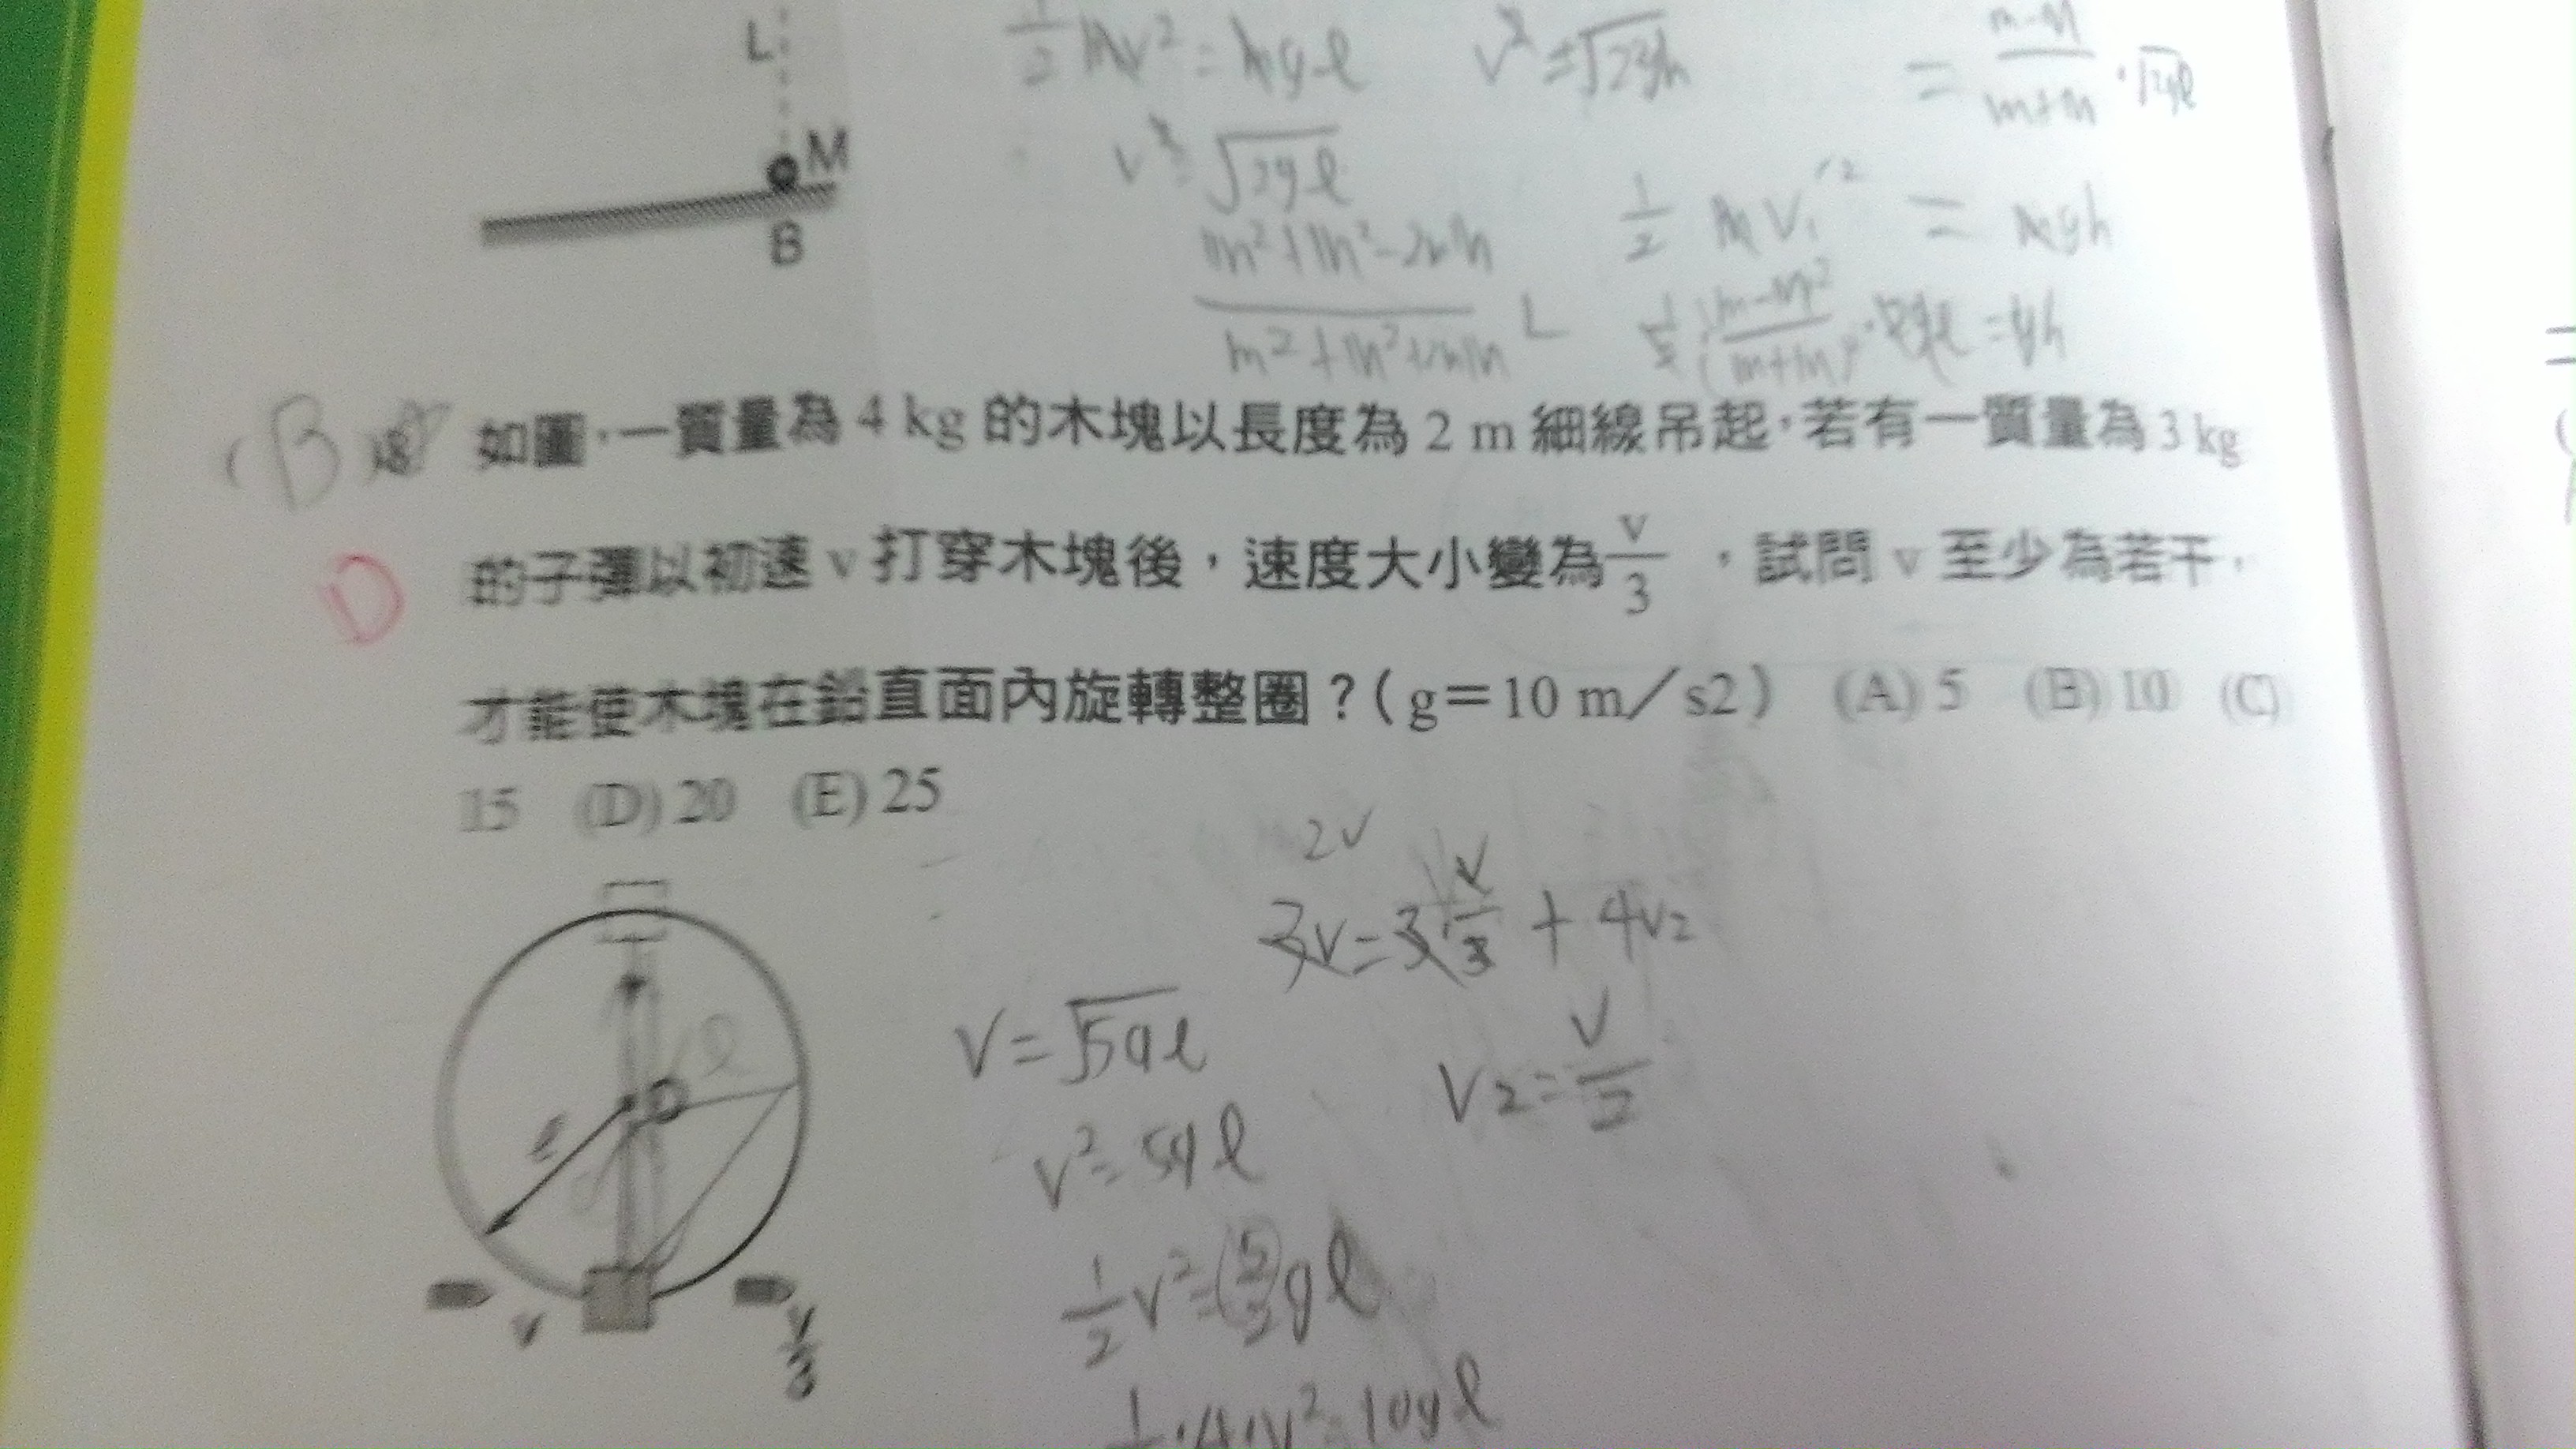 L
M
B
½mv² = mgl
v² = √2gh
= m-M / m+M · √2gl
v² = √2gl
½ m v₁'² = mgh
m²+M²-2mM / m²+M²+2mM L
(B)
如圖,一質量為 4 kg 的木塊以長度為 2 m 細線吊起,若有一質量為 3 kg
D
的子彈以初速 v 打穿木塊後,速度大小變為 v/3 ,試問 v 至少為若干,
才能使木塊在鉛直面內旋轉整圈?(g=10 m/s2) (A) 5 (B) 10 (C)
15 (D) 20 (E) 25
2v
3v = 3 v/3 + 4v₂
v = √5gl
v₂ = v/2
v² = 5gl
½v² = (5/2)gl
v
v/3